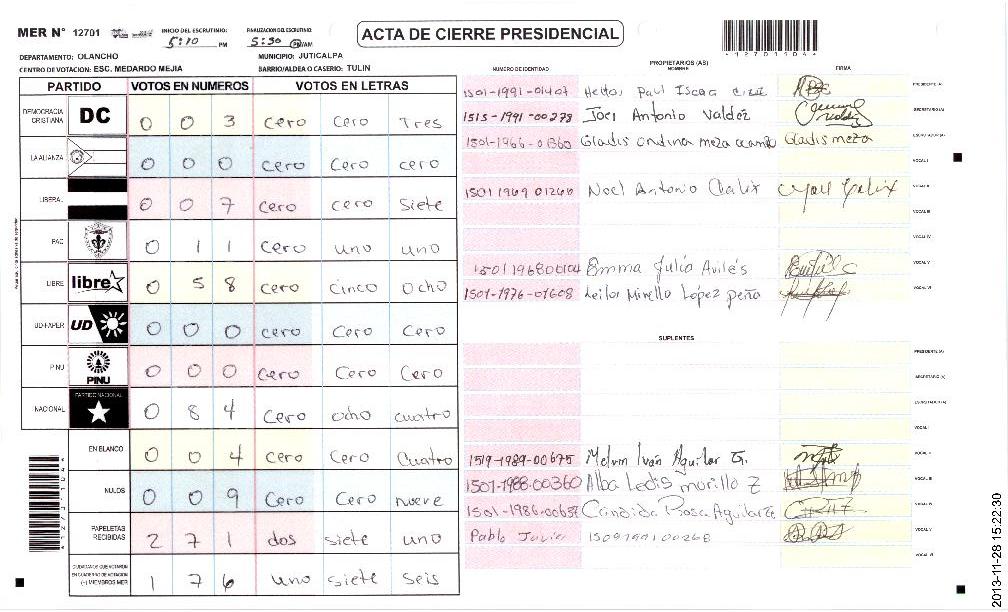 MER N° 12701 INICIO DEL ESCRUTINIO: 5:10 PM FINALIZACION DEL ESCRUTINIO: 5:30 PM/AM
ACTA DE CIERRE PRESIDENCIAL
DEPARTAMENTO: OLANCHO MUNICIPIO: JUTICALPA
CENTRO DE VOTACION: ESC. MEDARDO MEJIA BARRIO/ALDEA O CASERIO: TULIN
PARTIDO VOTOS EN NUMEROS VOTOS EN LETRAS
DEMOCRACIA CRISTIANA DC 0 0 3 cero cero Tres
LA ALIANZA 0 0 0 cero cero cero
LIBERAL 0 0 7 cero cero siete
PAC 0 1 1 cero uno uno
LIBRE libre 0 5 8 cero cinco ocho
UD-FAPER UD 0 0 0 cero cero cero
PINU PINU 0 0 0 cero cero cero
NACIONAL PARTIDO NACIONAL 0 8 4 cero ocho cuatro
EN BLANCO 0 0 4 cero cero cuatro
NULOS 0 0 9 cero cero nueve
PAPELETAS RECIBIDAS 2 7 1 dos siete uno
CIUDADANOS QUE VOTARON EN CUADERNO DE VOTACION (+) MIEMBROS MER 1 7 6 uno siete seis
PROPIETARIOS (AS)
NUMERO DE IDENTIDAD NOMBRE FIRMA
1501-1991-01407 Hector Paul PRESIDENTE (A)
1515-1991-00278 Joel Antonio Valdéz SECRETARIO (A)
1501-1966-01360 Gladis ondina meza Gladis meza ESCRUTADOR (A)
VOCAL I
1501 1969 01266 Noel Antonio Chalix VOCAL II
VOCAL III
VOCAL IV
1501 1968 00104 Emma Julia Avilés VOCAL V
1501-1976-01608 Leila Mirella López peña VOCAL VI
SUPLENTES
PRESIDENTE (A)
SECRETARIO (A)
ESCRUTADOR (A)
VOCAL I
1519-1989-00675 Melvin Iván Aguilar G. VOCAL II
1501-1988-00360 Alba Ledis morillo Z VOCAL III
1501-1986-00637 Candida Rosa Aguilar VOCAL IV
Pablo Julio VOCAL V
VOCAL VI
2013-11-28 15:22:30